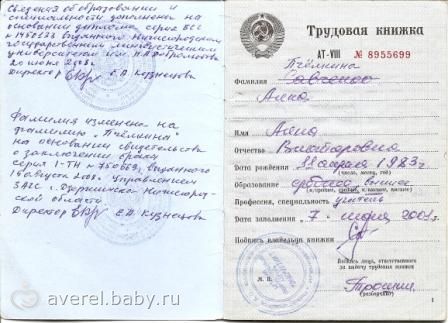 Сведения об образовании и
специальности дополнены на
основании диплома серия ВСГ
выданного Нижегородским
государственным лингвистическим
университетом им. Н.А. Добролюбова
20 июня 2008г.
Директор Е.А. Кузнецова
Фамилия изменена на
фамилию "Пчёлкина"
на основании свидетельства
о заключении брака
серия I-ТН выданного
16 августа 2008г. Управлением
ЗАГС г. Дзержинска Нижегород-
ской области.
Директор Е.А. Кузнецова
Трудовая книжка
AT-VIII № 8955699
Пчёлкина
Фамилия Савченко
Имя Алена
Отчество Викторовна
Дата рождения 1983г.
(число, месяц, год)
Образование среднее, высшее
Профессия, специальность учитель
Дата заполнения 7
Подпись владельца книжки
Подпись лица, ответственного
за выдачу трудовых книжек
М. П.
(разборчиво)
1
averel.baby.ru